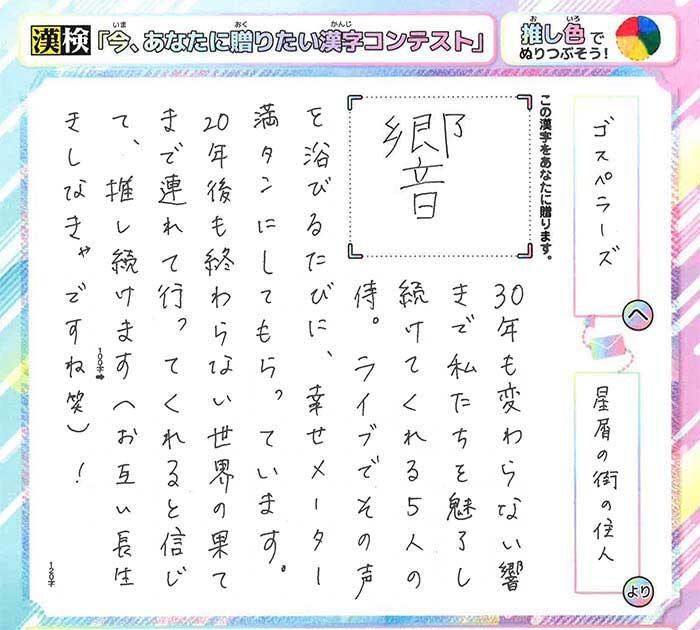 漢検
「今、あなたに贈りたい漢字コンテスト」
いま
おく
かんじ
推し色で
お
いろ
ぬりつぶそう！
ゴスペラーズ
へ
星屑の街の住人
より
この漢字をあなたに贈ります。
響
30年も変わらない響
きで私たちを魅了し
続けてくれる5人の
侍。ライブでその声
を浴びるたびに、幸せメーター
満タンにしてもらっています。
20年後も終わらない世界の果て
まで連れて行ってくれると信じ
て、推し続けます(お互い長生
100字
きしなきゃですね笑)！
120字